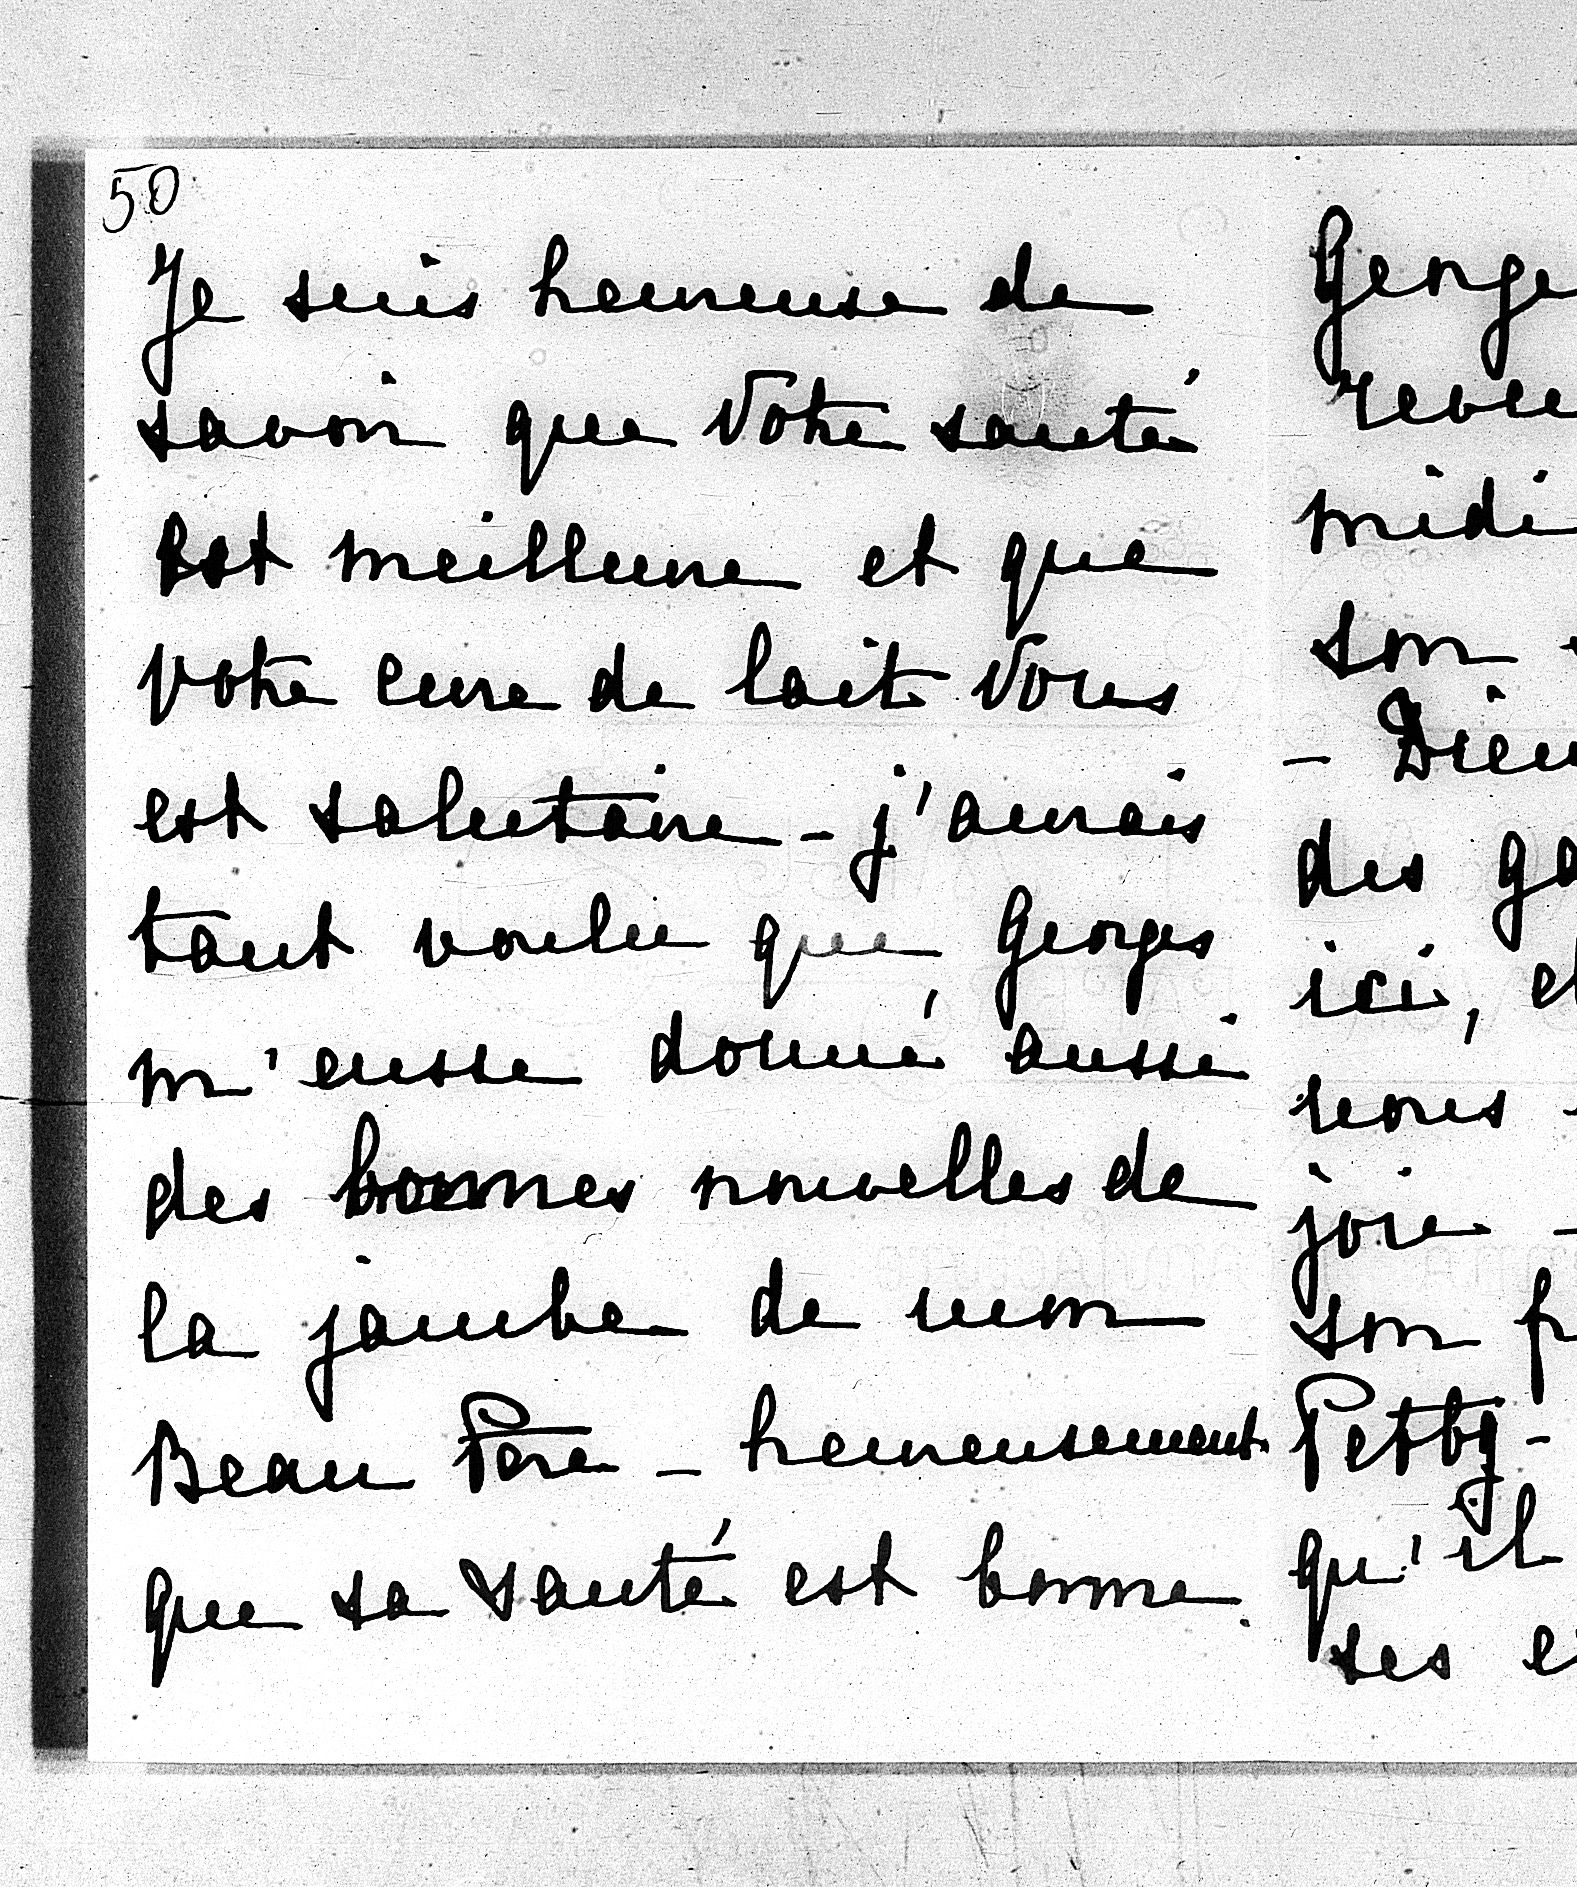 50
Je suis heureuse de
savoir que Votre santé
Est meilleure et que
votre cure de lait Vous
est salutaire - j'aurais
tant voulu que Georges
m'eusse donné aussi
des bonnes nouvelles de
la jambe de mon
Beau Père - heureusement
que sa santé est bonne.
George
midi
son
- Dieu
des
ici,
nous
joie -
son
Petty -
qu'il
ses